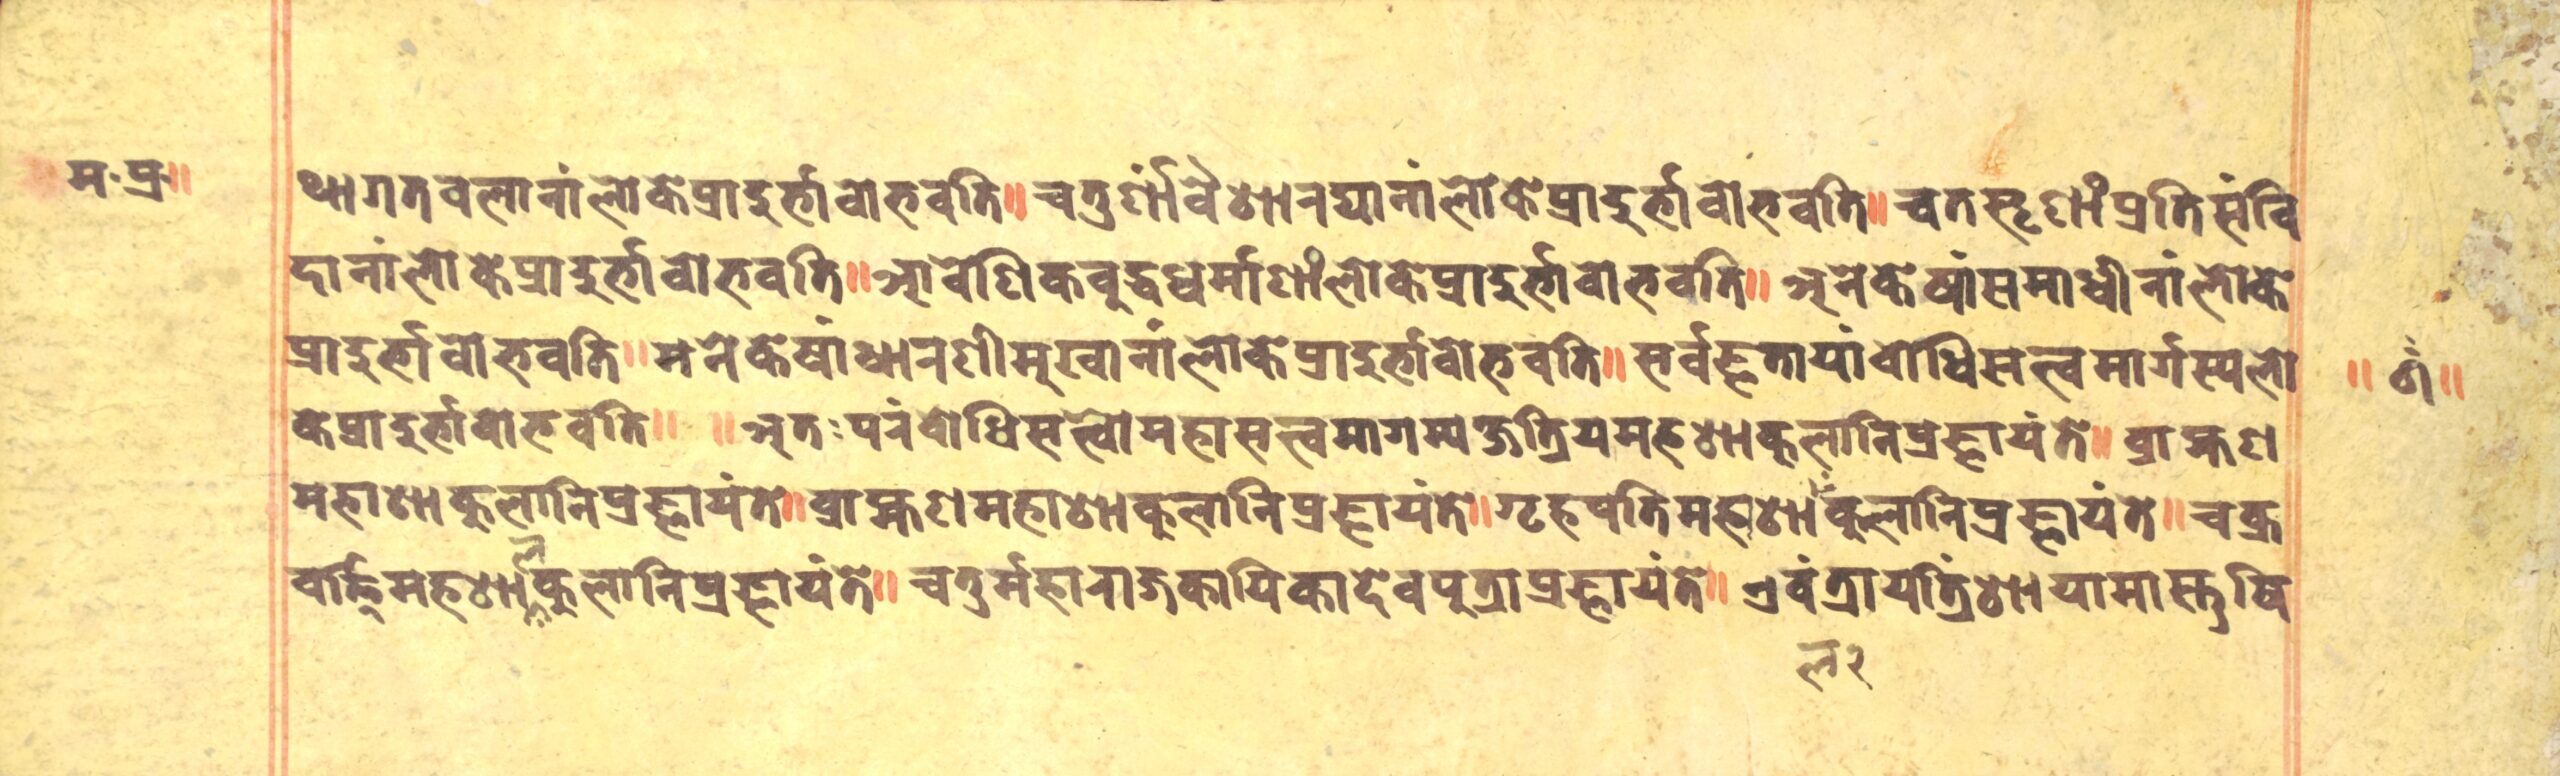 म॰प्र॰॥
थागतवलानांलोकेप्रादुर्भावोभवति॥चतुर्णांवैशारद्यानांलोकेप्रादुर्भावोभवति॥चतसृणांप्रतिसंवि
दानांलोकेप्रादुर्भावोभवति॥आवेणिकवुद्धधर्माणांलोकेप्रादुर्भावोभवति॥अनेकेषांसमाधीनांलोके
प्रादुर्भावोभवति॥मनेकेषांधारणीमुखानांलोकेप्रादुर्भावोभवति॥सर्वज्ञतायांवोधिसत्त्वमार्गस्यलो
केप्रादुर्भावोभवति॥ ॥अतःपरंवोधिसत्त्वोमहासत्त्वमागम्यक्षत्रियमहाशाकुलानिप्रज्ञायंते॥व्राह्मण
महाशाकुलानिप्रज्ञायंते॥व्राह्मणमहाशाकुलानिप्रज्ञायंते॥गृहपतिमहाशाकुलानिप्रज्ञायंते॥चक्र
वर्त्तिमहाशाकुलानिप्रज्ञायंते॥चतुर्महाराजकायिकादेवपुत्राप्रज्ञायंते॥एवंत्रायत्रिंशायामास्तुषि
ल२